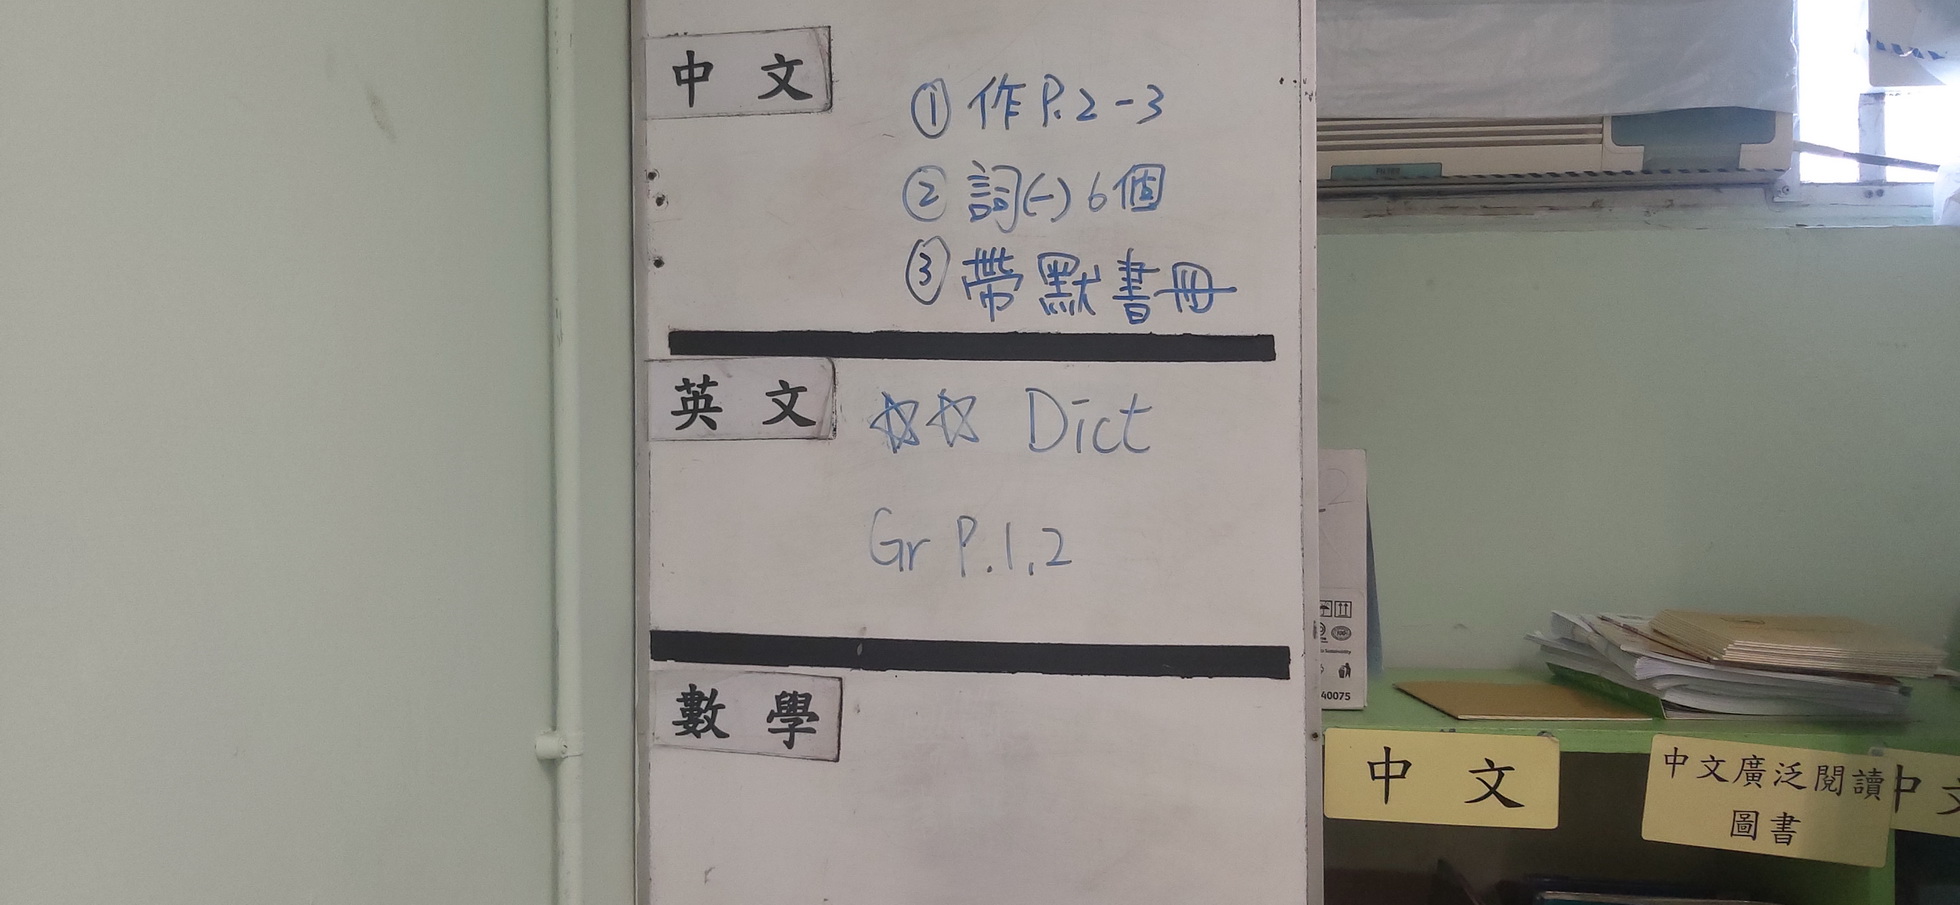 中文
① 作 P.2-3
② 詞(一) 6個
③ 帶默書冊
英文
☆☆ Dict
Gr P.1,2
數學
40075
中文
中文廣泛閱讀
圖書
中文